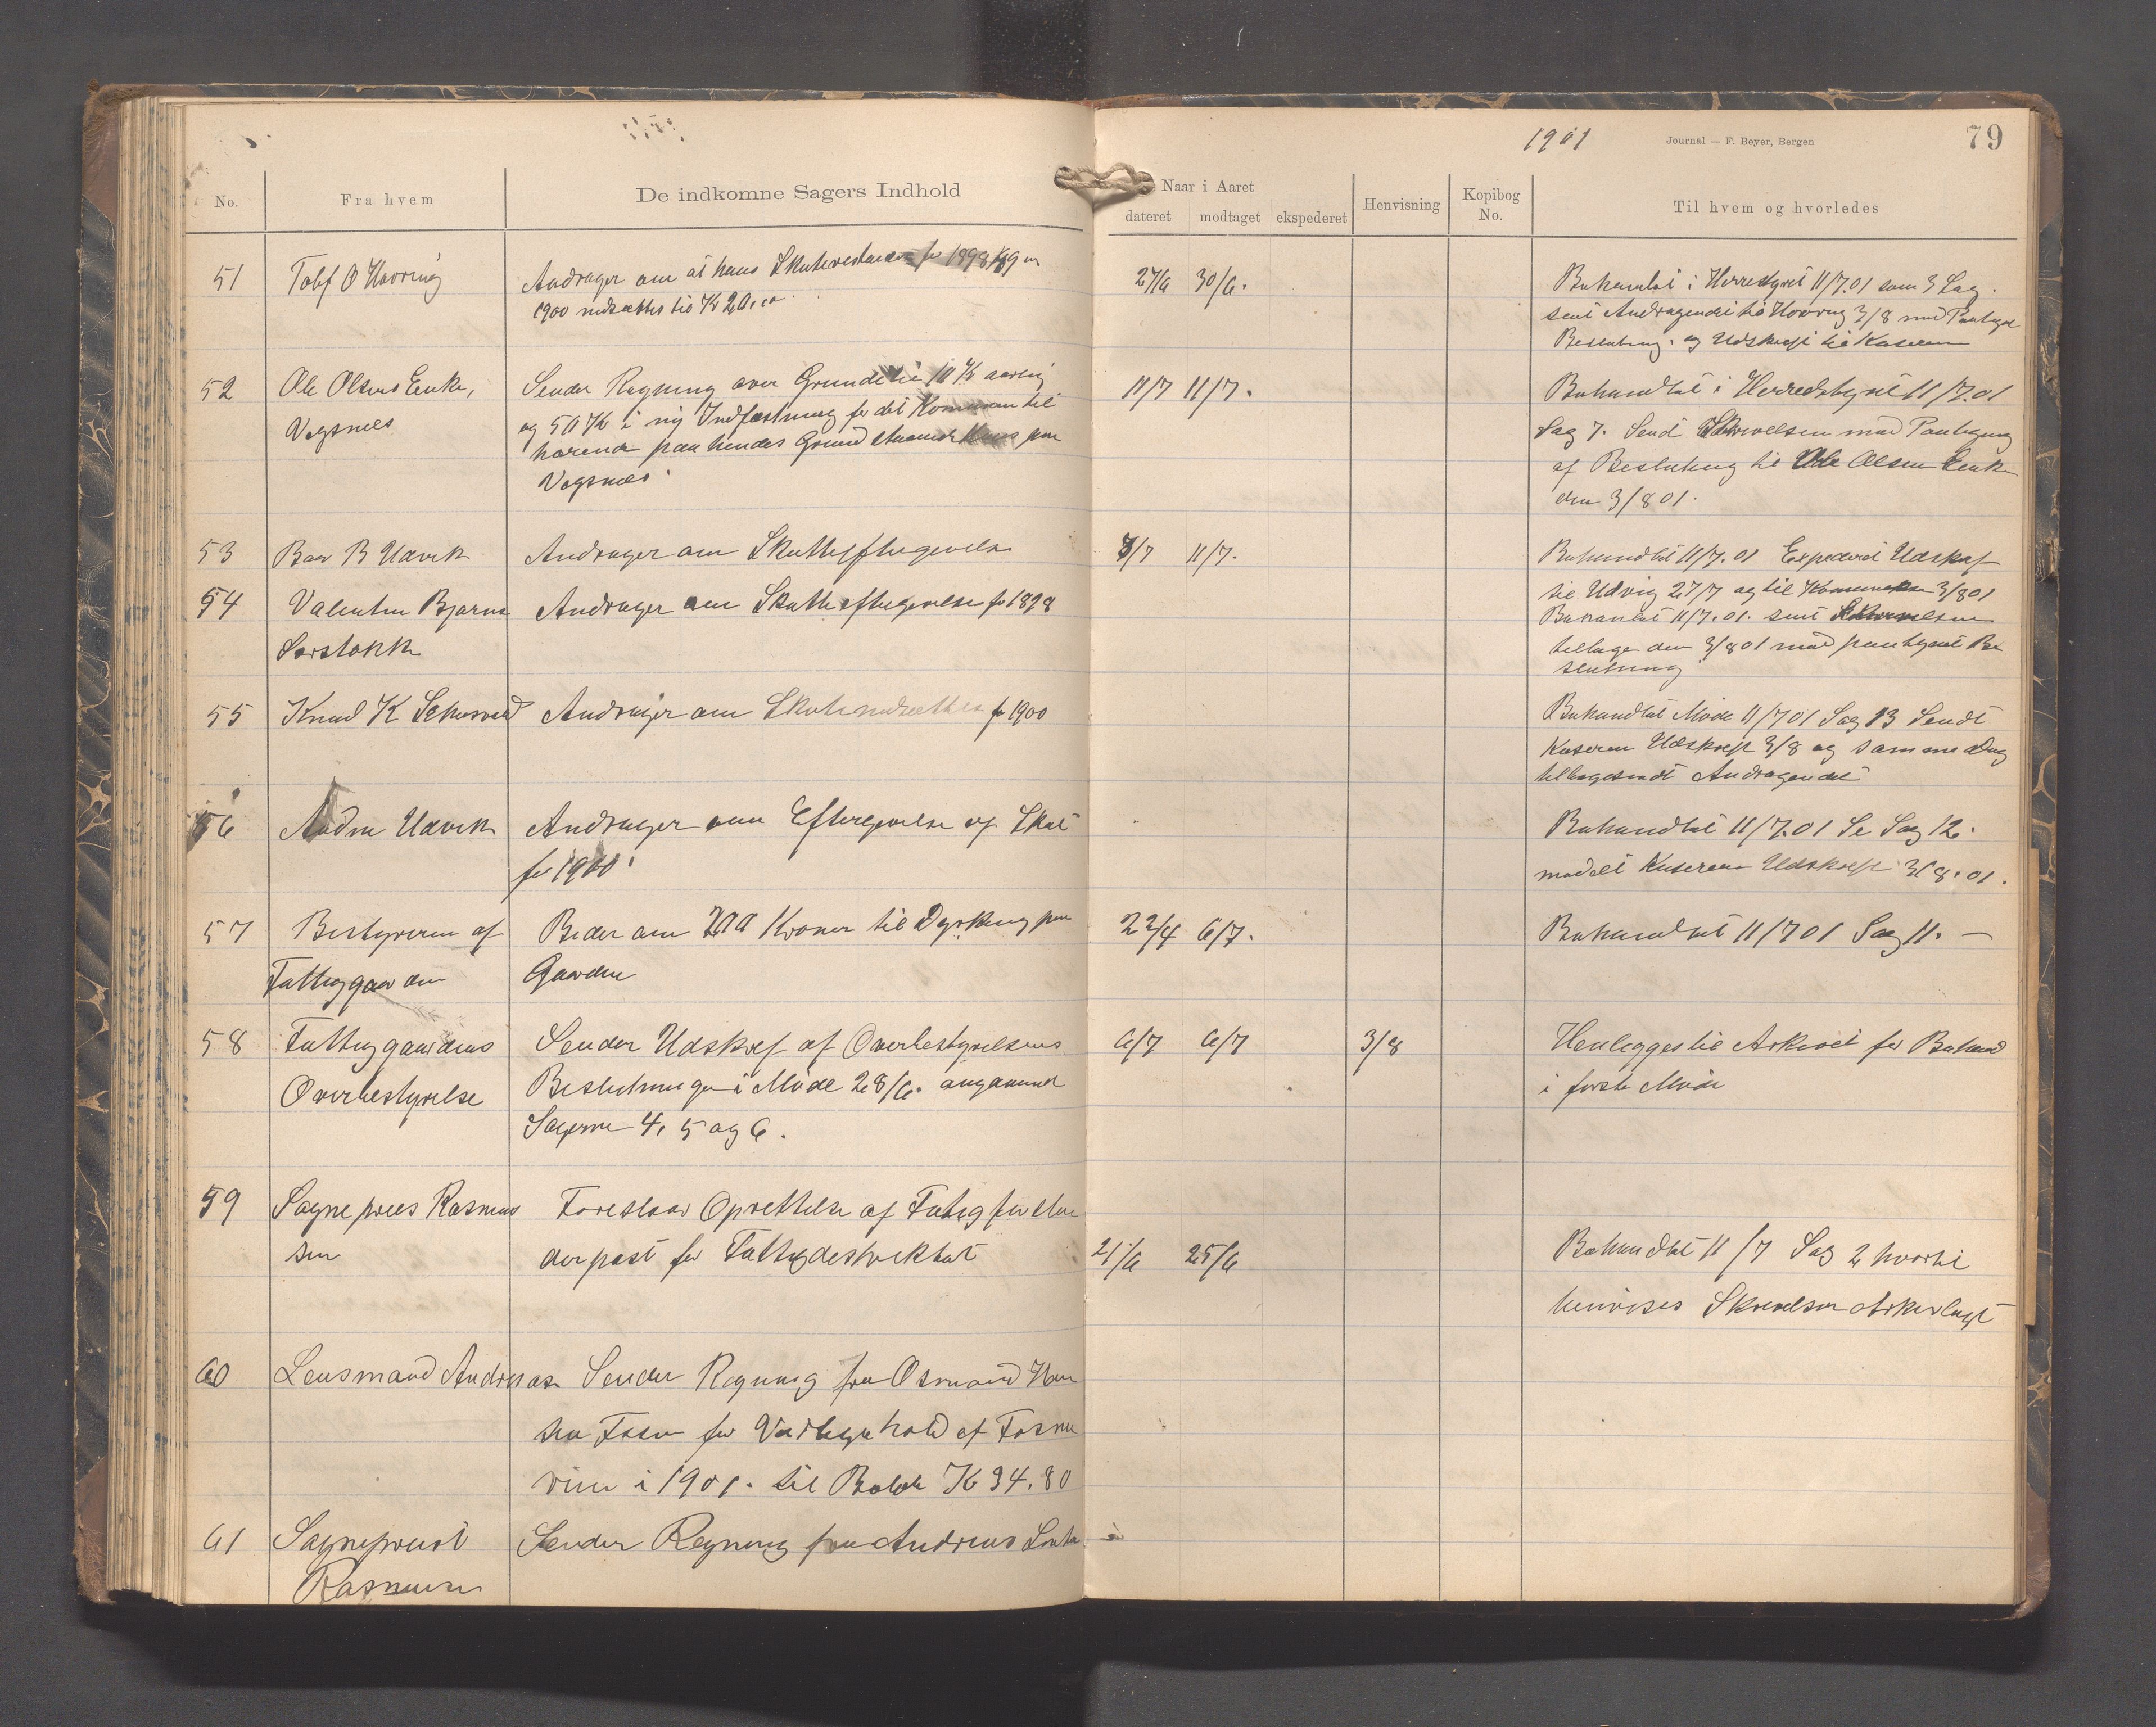 1901
Journal — F. Beyer, Bergen
79
No.
Fra hvem
De indkomne Sagers Indhold
Naar i Aaret
dateret
modtaget
ekspederet
Henvisning
Kopibog
No.
Til hvem og hvorledes
51
Andrager om at hans for 1898/99 og
1900 nedsættes til Kr
27/6 30/6.
Behandlet i Herredsstyret 11/7.01 som 3 Sag.
sent Andragendet til 3/8 med Paategn
Beslutning og Udskrift til Kaseren
52
Ole Olsens Enke,
Vogsnes
Sender Regning over Grundleie 10 Kr aarlig
og 50 Kr i ny Indfæstning for det Kommunen til
hørende paa hendes Grund staaende Hus paa
Vogsnes.
11/7 11/7.
Behandlet i Herredsstyret 11/7.01
Sag 7. Send Skrivelsen med Paategning
af Beslutning til Ole Olsen Enke
den 3/8 01.
53
B Udvik
Andrager om Skatteeftergivelse
7/7 11/7.
Behandlet 11/7.01 Expederet Udskrift
til Udvig 27/7 og til 3/8 01
54
Valentin Bjarne
Sørstokke
Andrager om Skatteeftergivelse for 1898
Behandlet 11/7.01. sent Skrivelsen
tilbage den 3/8 01 med paategnet Be
slutning
55
Knud K
Andrager om Skatenedsættelse for 1900
Behandlet Møde 11/7 01 Sag 13 Sendt
Kaseren Udskrift 3/8 og samme Dag
tilbagesendt Andragendet
56
Udvik
Andrager om Eftergivelse af Skat
for 1900
Behandlet 11/7.01 Se Sag 12.
meddelt Kaseren Udskrift 3/8.01.
57
Bestyreren af
Fattiggaarden
Beder om 200 Kroner til Dyrkning paa
Gaarden
22/4 6/7.
Behandlet 11/7 01 Sag 11. —
58
Fattiggaardens
Overbestyrelse
Sender Udskrift af Overbestyrelsens
Beslutninger i Møde 28/6. angaaende
Sagerne 4, 5 og 6.
6/7 6/7
3/8
Henlegges til Arkivet for Behand
i første Møde
59
Sogneprest Rasmus
sen
Foreslaar Oprettelse af Fattigforstan
derpost for Fattigdestriktet
21/6 25/6
Behandlet 11/7 Sag 2 hvortil
henvises Skrivelsen Arkivlagt
60
Lensmand Andreasen
Sender Regning fra Osmund Han
sen Fosen for Vedligehold af Fosne
i 1901. til Beløb Kr 34.80
61
Sogneprest
Rasmussen
Sender Regning fra Andreas